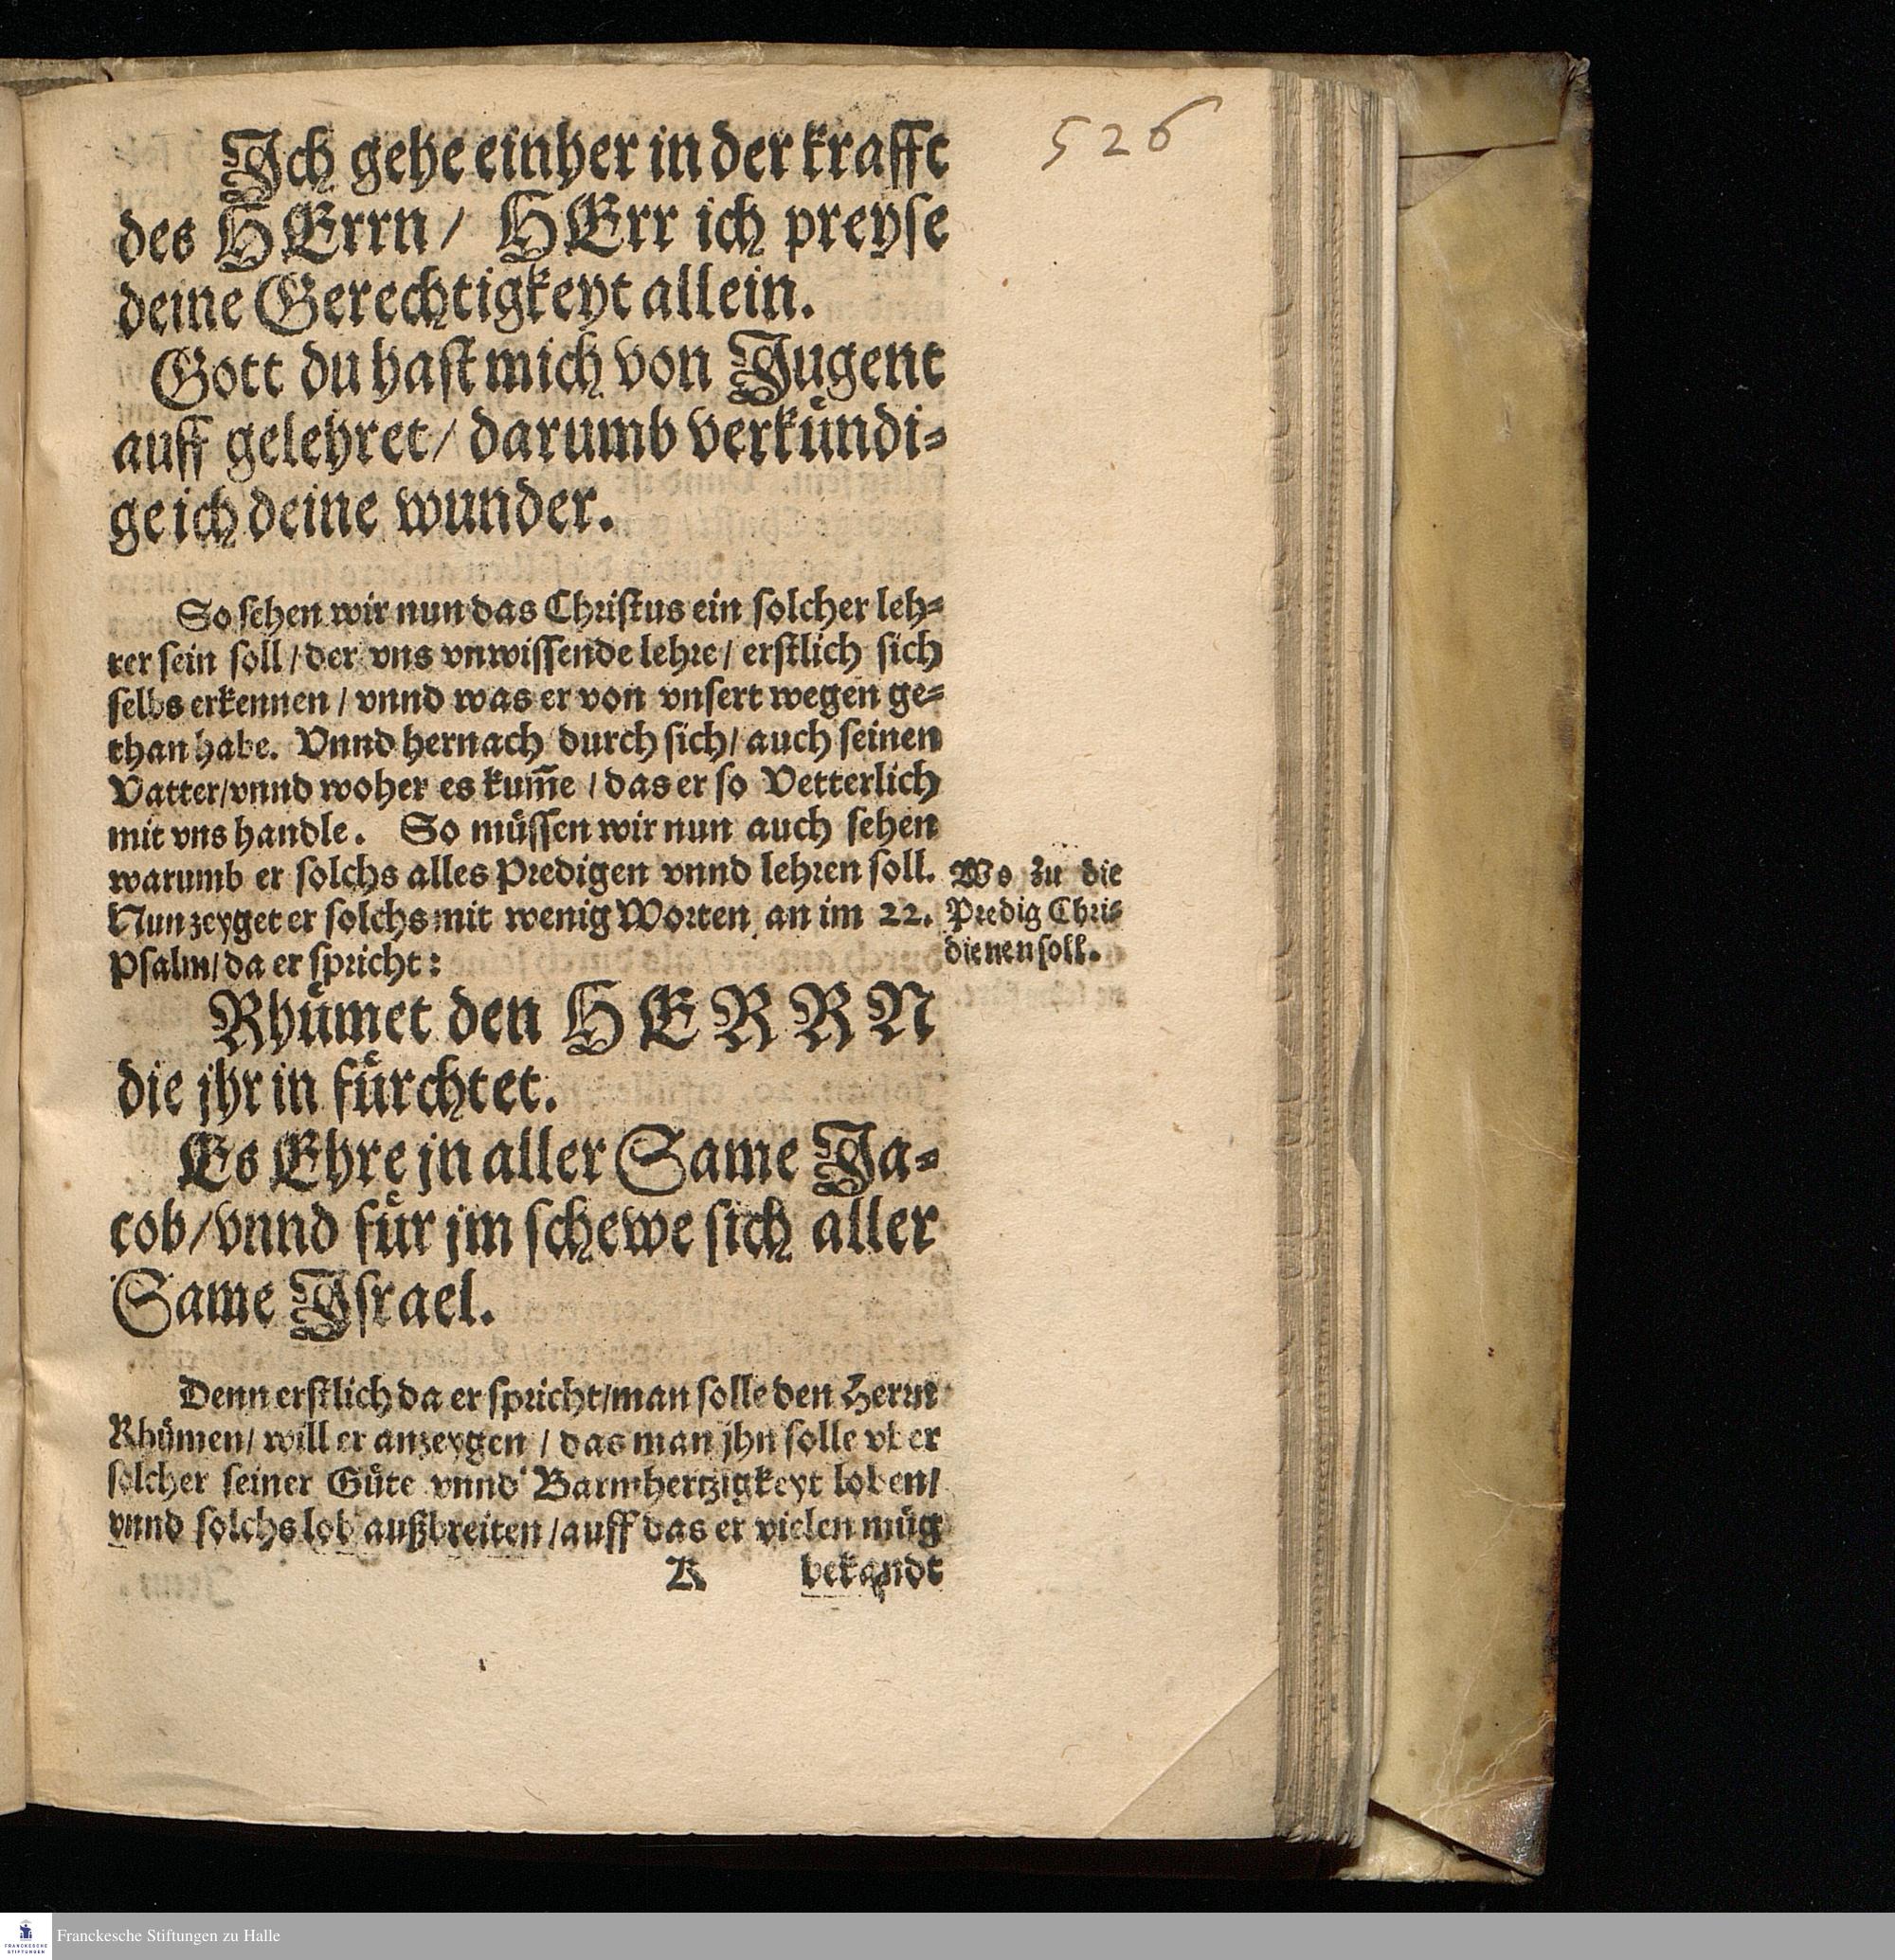 526
Ich gehe einher in der krafft
des HErrn / HErr ich preyse
deine Gerechtigkeyt allein.
Gott du hast mich von Jugent
auff gelehret / darumb verkündi-
ge ich deine wunder.
So sehen wir nun das Christus ein solcher leh-
rer sein soll / der vns vnwissende lehre / erstlich sich
selbs erkennen / vnnd was er von vnsert wegen ge-
than habe. Vnnd hernach durch sich / auch seinen
Vatter / vnnd woher es kum̄e / das er so Vetterlich
mit vns handle. So müssen wir nun auch sehen
warumb er solchs alles Predigen vnnd lehren soll.
Nun zeyget er solchs mit wenig Worten an im 22.
Psalm / da er spricht:
Wo zu die
Predig Chri-
dienen soll.
Rhümet den HERRN
die jhr in fürchtet.
Es Ehre jn aller Same Ja-
cob / vnnd für jm schewe sich aller
Same Israel.
Denn erstlich da er spricht / man solle den Herrn
Rhümen / will er anzeygen / das man jhn solle vber
solcher seiner Güte vnnd Barmhertzigkeyt loben /
vnnd solchs lob außbreiten / auff das er vielen müg
K bekandt
Franckesche Stiftungen zu Halle